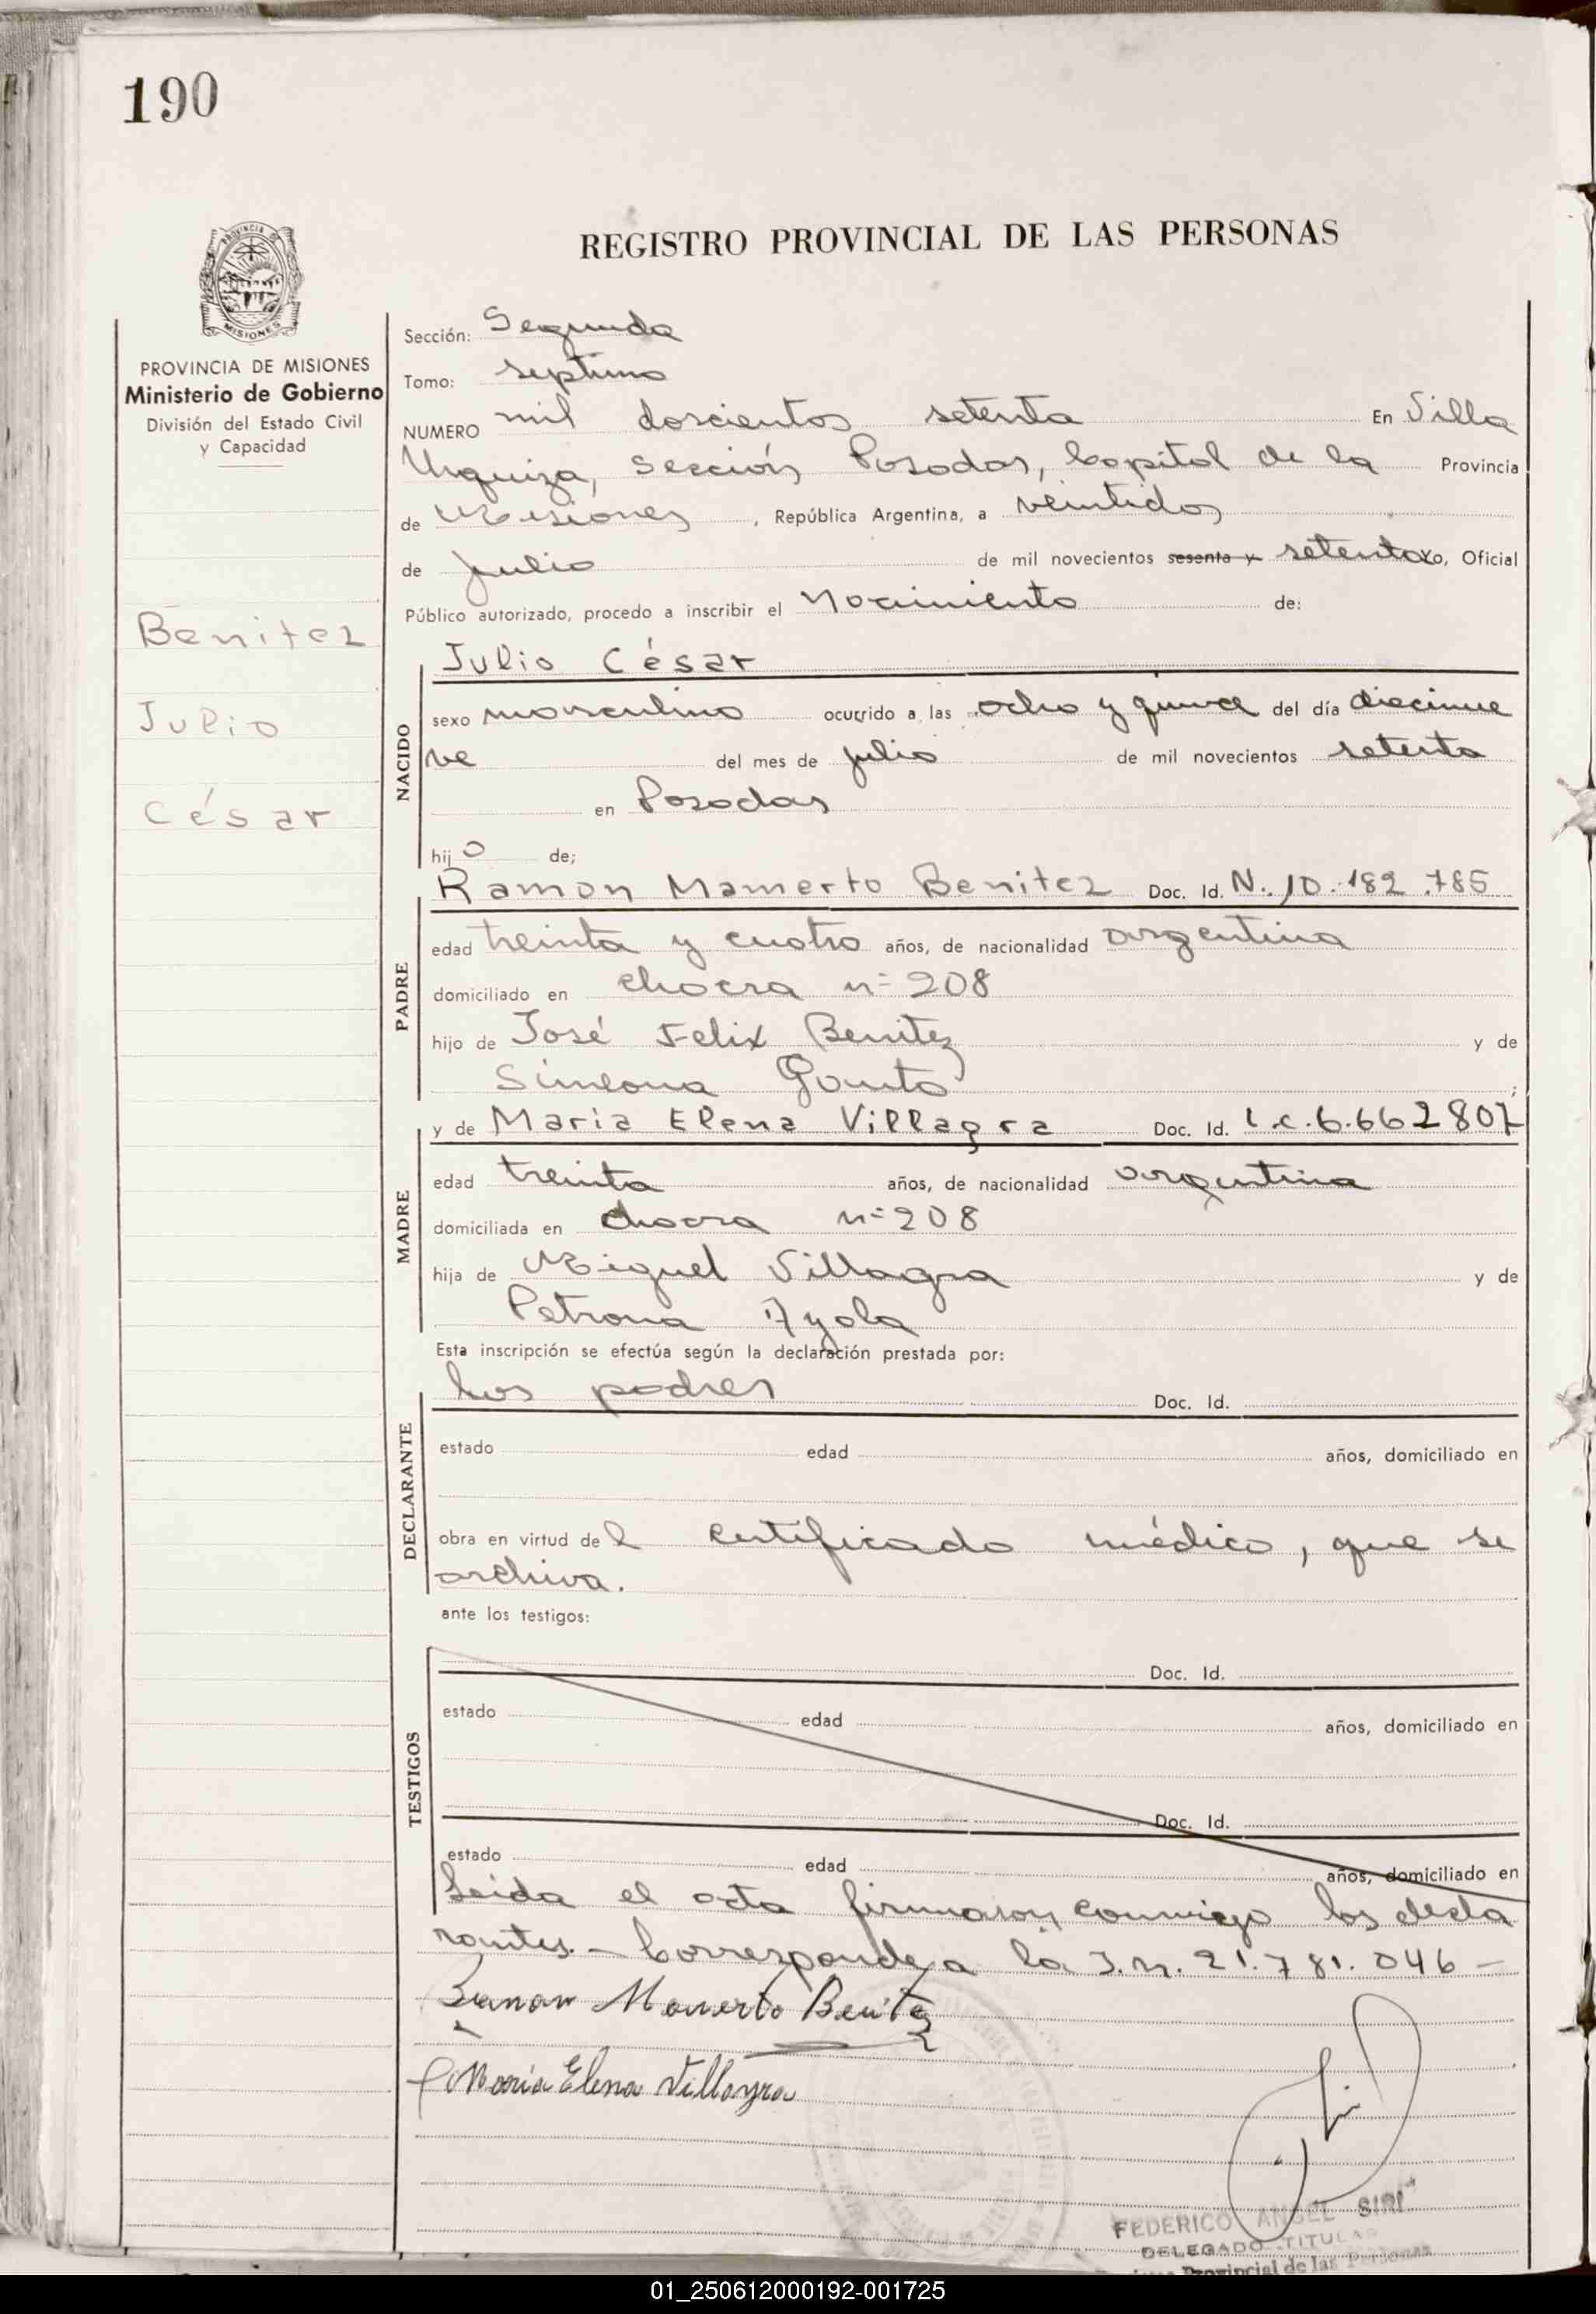 190
REGISTRO PROVINCIAL DE LAS PERSONAS
PROVINCIA DE MISIONES
MISIONES
PROVINCIA DE MISIONES
Ministerio de Gobierno
División del Estado Civil
y Capacidad
Benitez
Julio
César
Sección: Segunda
Tomo: septimo
NUMERO mil doscientos setenta En Villa
Urquiza, sección Posadas, Capital de la Provincia
de Misiones, República Argentina, a veintidos
de julio de mil novecientos sesenta y setenta, Oficial
Público autorizado, procedo a inscribir el Nacimiento de:
Julio César
NACIDO
sexo masculino ocurrido a las ocho y quince del día diecinue
ve del mes de julio de mil novecientos setenta
en Posadas
hijo de;
Ramon Mamerto Benitez Doc. Id. N. 10.182.785
PADRE
edad treinta y cuatro años, de nacionalidad argentina
domiciliado en chacra nº 208
hijo de José Felix Benitez y de
Simeona ;
y de Maria Elena Villagra Doc. Id. L.C. 6.662807
MADRE
edad treinta años, de nacionalidad argentina
domiciliada en chacra nº 208
hija de Miguel Villagra y de
Petrona Ayala
Esta inscripción se efectúa según la declaración prestada por:
los padres Doc. Id.
DECLARANTE
estado edad años, domiciliado en
obra en virtud del certificado médico, que se
archiva.
ante los testigos:
Doc. Id.
TESTIGOS
estado edad años, domiciliado en
Doc. Id.
estado edad años, domiciliado en
Leida el acta firmaron conmigo los decla
rantes.- Corresponde a la I.N. 21.781.046 -
Ramon Mamerto Benitez
Maria Elena Villagra
FEDERICO ANGEL SIRI
DELEGADO TITULAR
Provincial de las Personas
01_250612000192-001725